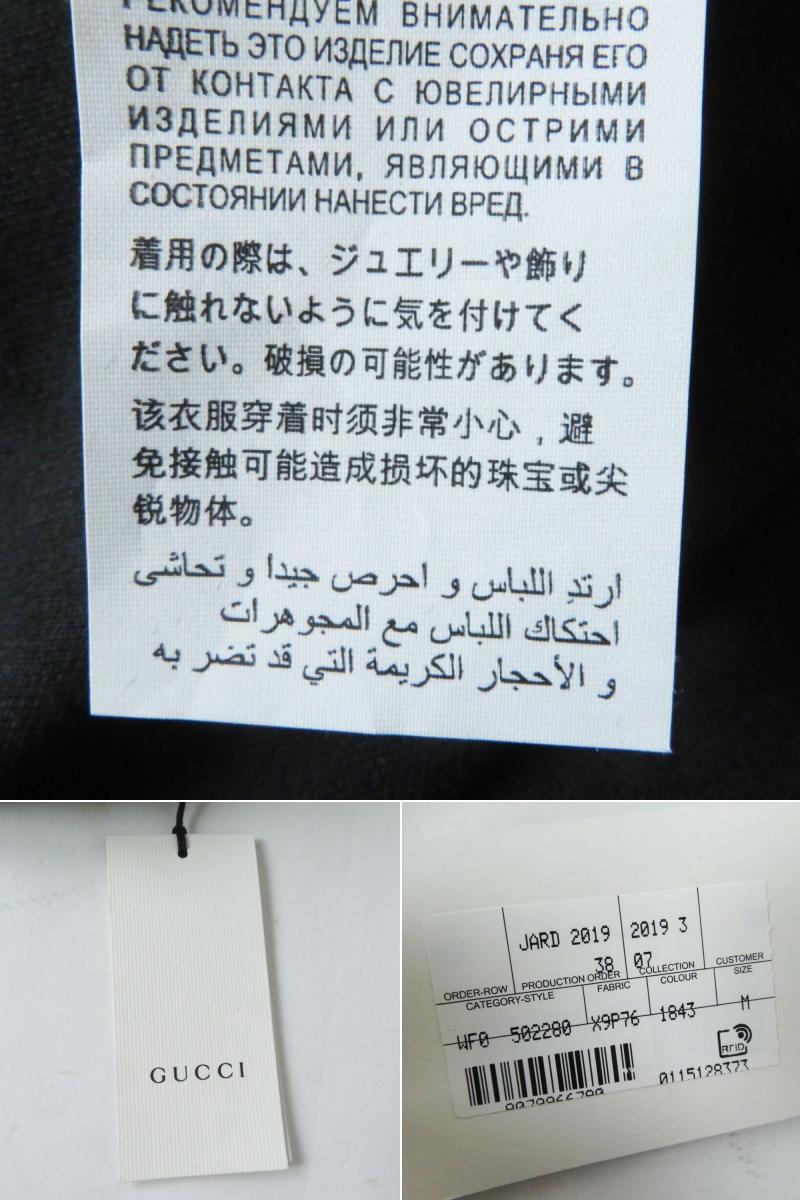 РЕКОМЕНДУЕМ ВНИМАТЕЛЬНО
НАДЕТЬ ЭТО ИЗДЕЛИЕ СОХРАНЯ ЕГО
ОТ КОНТАКТА С ЮВЕЛИРНЫМИ
ИЗДЕЛИЯМИ ИЛИ ОСТРИМИ
ПРЕДМЕТАМИ, ЯВЛЯЮЩИМИ В
СОСТОЯНИИ НАНЕСТИ ВРЕД.
着用の際は、ジュエリーや飾り
に触れないように気を付けてく
ださい。破損の可能性があります。
该衣服穿着时须非常小心，避
免接触可能造成损坏的珠宝或尖
锐物体。
ارتدِ اللباس و احرص جيدا و تحاشى
احتكاك اللباس مع المجوهرات
و الأحجار الكريمة التي قد تضر به
GUCCI
JARD 2019 2019 3
38 07
ORDER-ROW PRODUCTION ORDER COLLECTION CUSTOMER
CATEGORY-STYLE FABRIC COLOUR SIZE
WF0 502280 X9P76 1843 M
RFID
0115128373